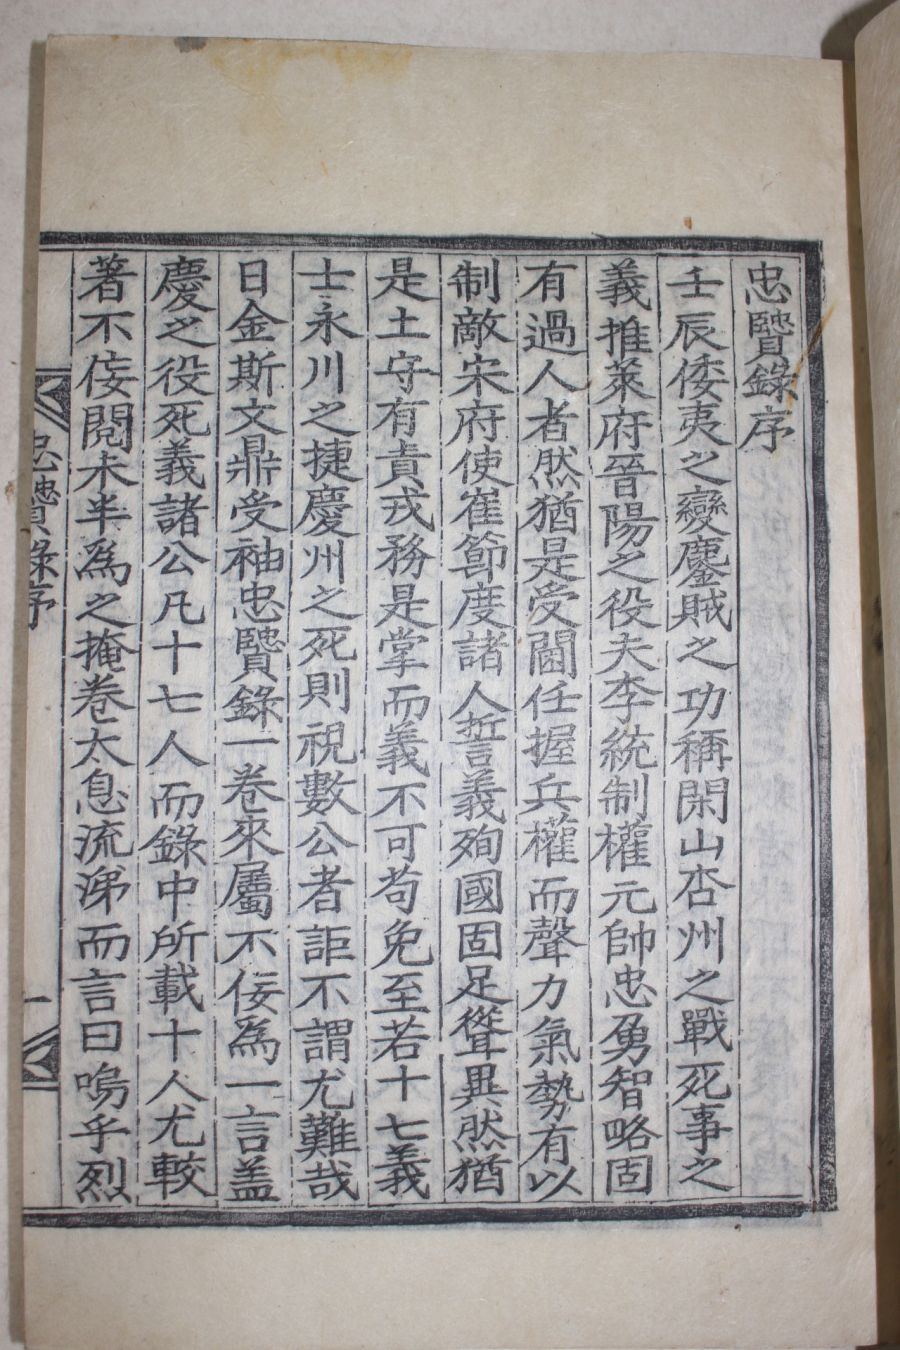 忠贒錄序
壬辰倭夷之變鏖賊之功稱閑山杏州之戰死事之
義推萊府晉陽之役夫李統制權元帥忠勇智略固
有過人者然猶是受閫任握兵權而聲力氣勢有以
制敵宋府使崔節度諸人誓義殉國固足聳異然猶
是土守有責戎務是掌而義不可苟免至若十七義
士永川之捷慶州之死則視數公者詎不謂尤難哉
日金斯文鼎受袖忠贒錄一卷來屬不侫爲一言盖
慶之役死義諸公凡十七人而錄中所載十人尤較
著不侫閱未半爲之掩卷太息流涕而言曰嗚乎烈
忠贒錄序 一